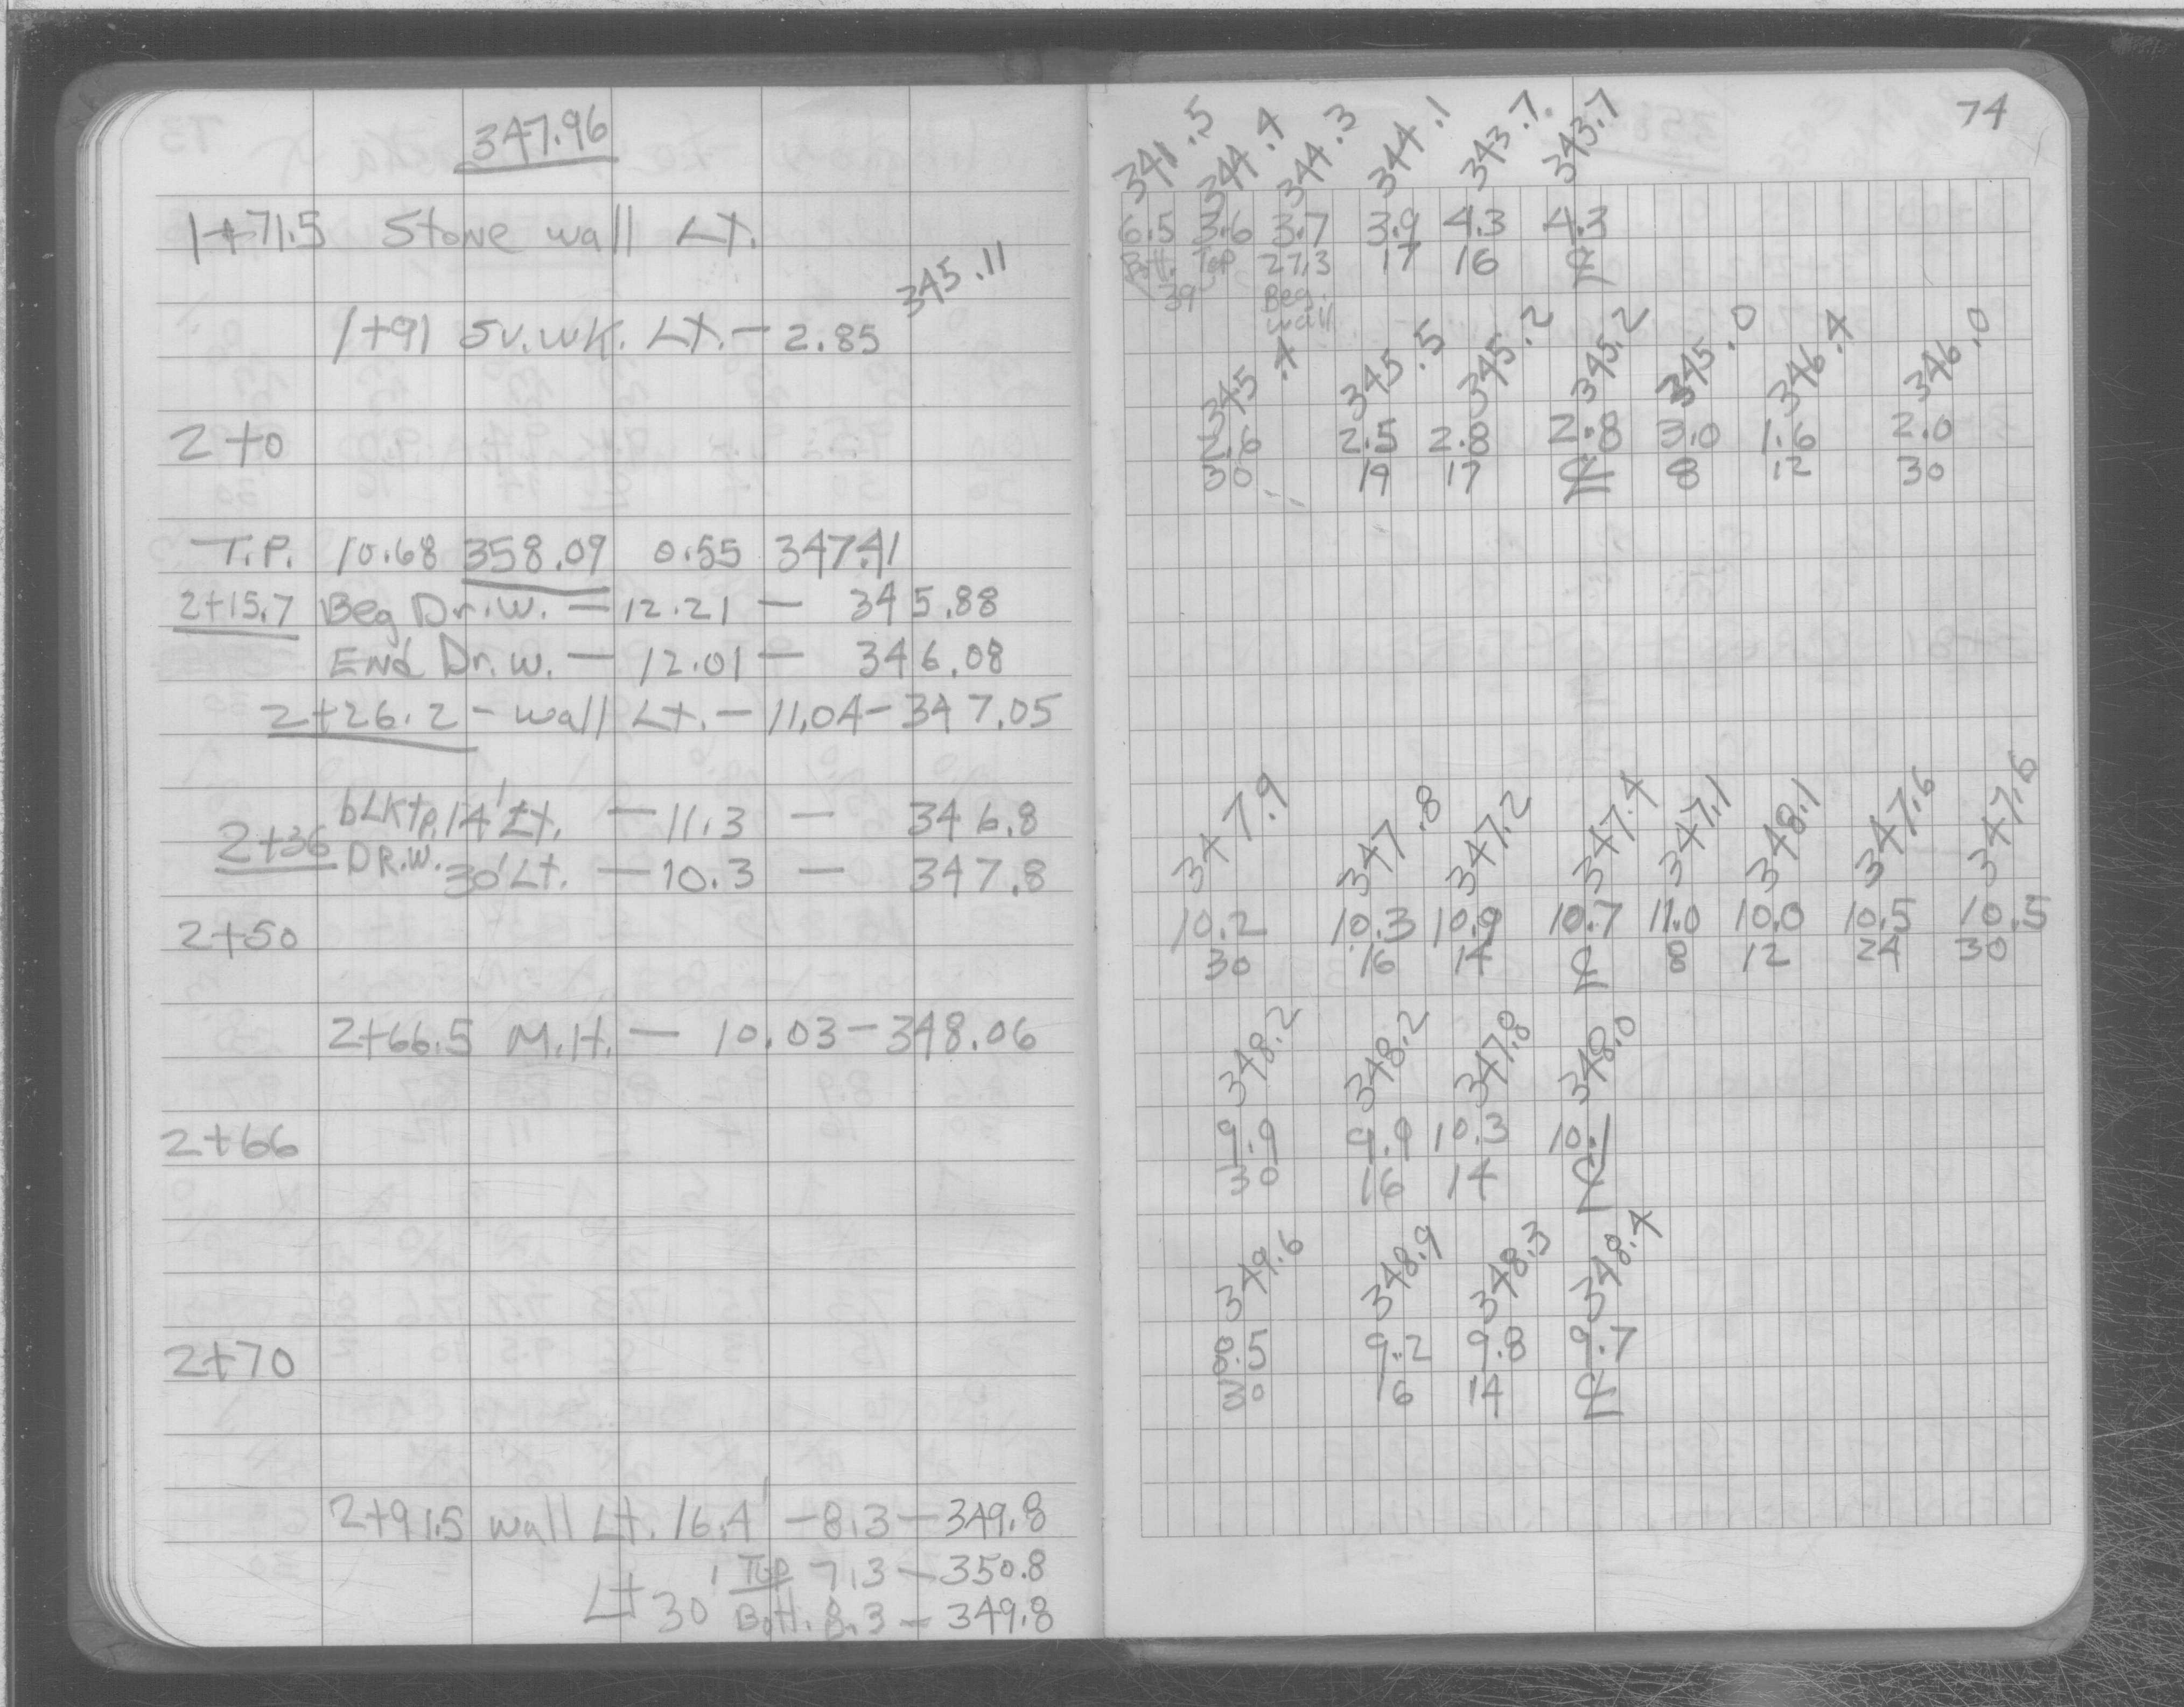 347.96
1+71.5 Stone wall Lt.
1+91 Sv.wk. Lt. - 2.85 345.11
2+0
T.P. 10.68 358.09 0.55 347.41
2+15.7 Beg Dr.w. - 12.21 - 345.88
End Dr.w. - 12.01 - 346.08
2+26.2 - wall Lt. - 11.04 - 347.05
2+36 bLKtp. 14' Lt. - 11.3 - 346.8
DR.W. 30' Lt. - 10.3 - 347.8
2+50
2+66.5 M.H. - 10.03 - 348.06
2+66
2+70
2+91.5 wall Lt. 16.4' - 8.3 - 349.8
Lt 30' Top 7.3 - 350.8
Bott. 8.3 - 349.8
74
341.5 344.4 344.3 344.1 343.7 343.7
6.5 3.6 3.7 3.9 4.3 4.3
Bott. Top 27.3 17 16 ℄
39 Beg.
wall
345.4 345.5 345.2 345.2 345.0 346.4 346.0
2.6 2.5 2.8 2.8 3.0 1.6 2.0
30 19 17 ℄ 8 12 30
347.9 347.8 347.2 347.4 347.1 348.1 347.6 347.6
10.2 10.3 10.9 10.7 11.0 10.0 10.5 10.5
30 16 14 ℄ 8 12 24 30
348.2 348.2 347.8 348.0
9.9 9.9 10.3 10.1
30 16 14 ℄
349.6 348.9 348.3 348.4
8.5 9.2 9.8 9.7
30 16 14 ℄